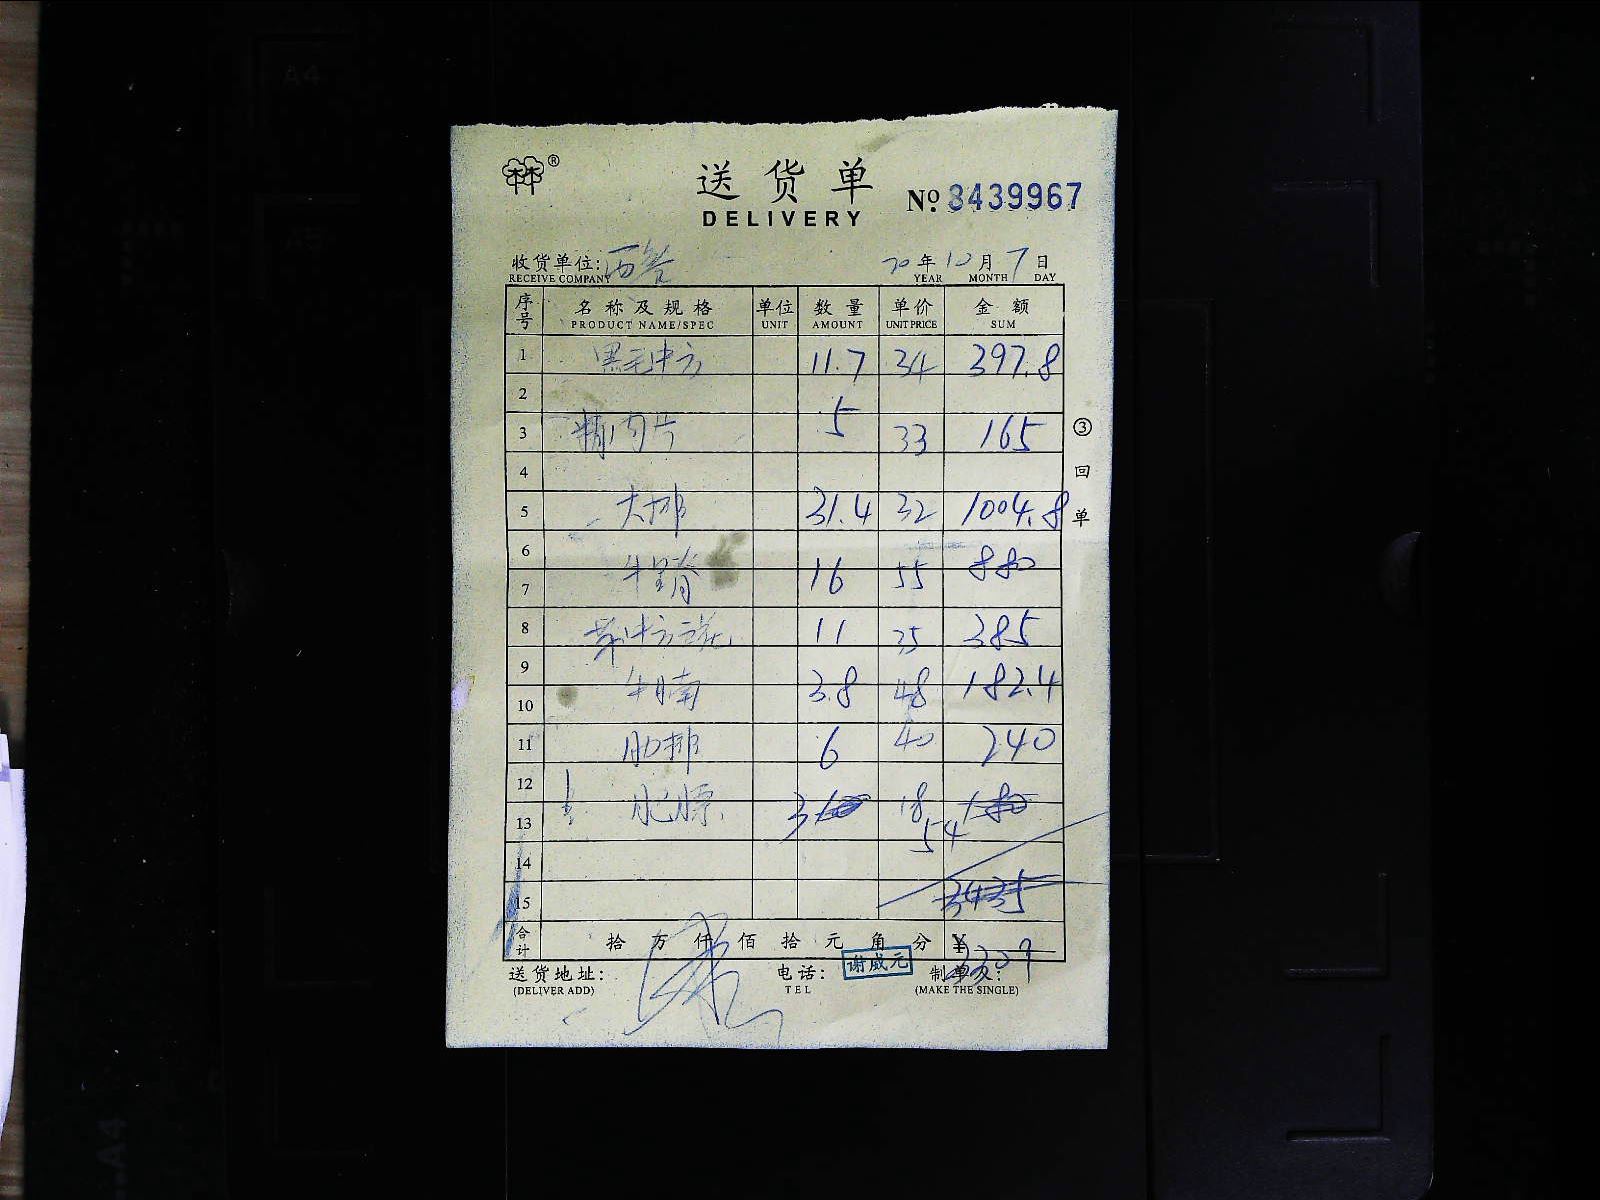 送货单
DELIVERY
№ 3439967
收货单位: 西餐 20年10月7日
RECEIVE COMPANY YEAR MONTH DAY
序号 名称及规格 单位 数量 单价 金额
PRODUCT NAME/SPEC UNIT AMOUNT UNIT PRICE SUM
1 黑毛中方 11.7 34 397.8
2
3 精肉片 5 33 165
4
5 大排 31.4 32 1004.8
6
7 牛里脊 16 55 880
8 11 35 385
9
10 牛腩 3.8 48 182.4
11 肋排 6 40 240
12
13 肥膘 3 18 180
54
14
15 3435
合计 拾万仟佰拾元角分 ¥ 3309
③回单
送货地址: 电话: 谢威元 制单人:
(DELIVER ADD) TEL (MAKE THE SINGLE)
A4
A5
A4